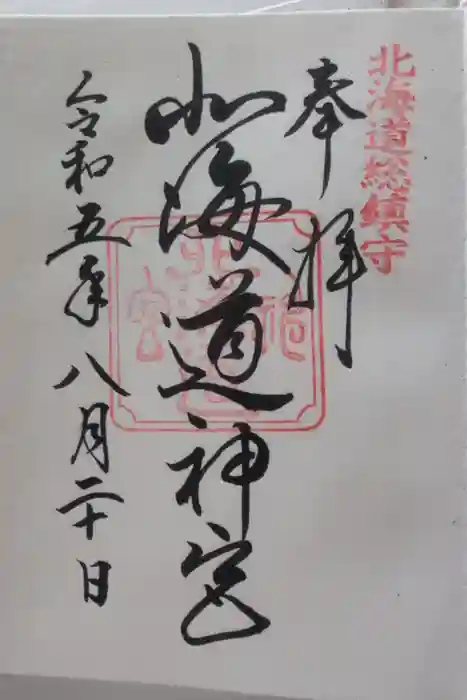 北海道総鎮守
奉拝
北海道神宮
令和五年八月二十日